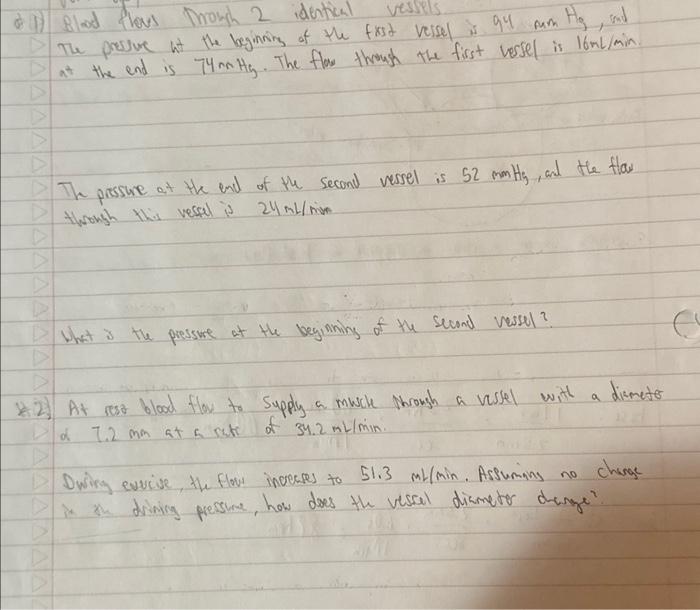 1) Blood flows through 2 identical vessels
The pressure at the beginning of the first vessel is 94 mm Hg, and
at the end is 74 mm Hg. The flow through the first vessel is 16mL/min.
The pressure at the end of the second vessel is 52 mmHg, and the flow
through this vessel is 24 mL/min
What is the pressure at the beginning of the second vessel?
* 2) At rest blood flow to supply a muscle through a vessel with a diameter
of 7.2 mm at a rate of 34.2 mL/min.
During exercise, the flow increases to 51.3 mL/min. Assuming no change
in the driving pressure, how does the vessel diameter change?